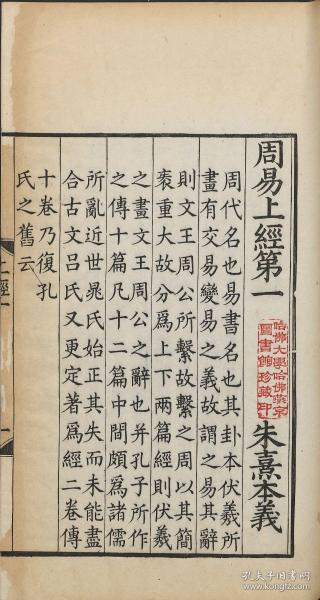 周易上經第一
朱熹本義
哈佛大學哈佛燕京
圖書館珍藏印
周代名也易書名也其卦本伏羲所
畫有交易變易之義故謂之易其辭
則文王周公所繫故繫之周以其簡
袠重大故分爲上下兩篇經則伏羲
之畫文王周公之辭也并孔子所作
之傳十篇凡十二篇中間頗爲諸儒
所亂近世晁氏始正其失而未能盡
合古文呂氏又更定著爲經二卷傳
十卷乃復孔
氏之舊云
上經
孔夫子旧书网